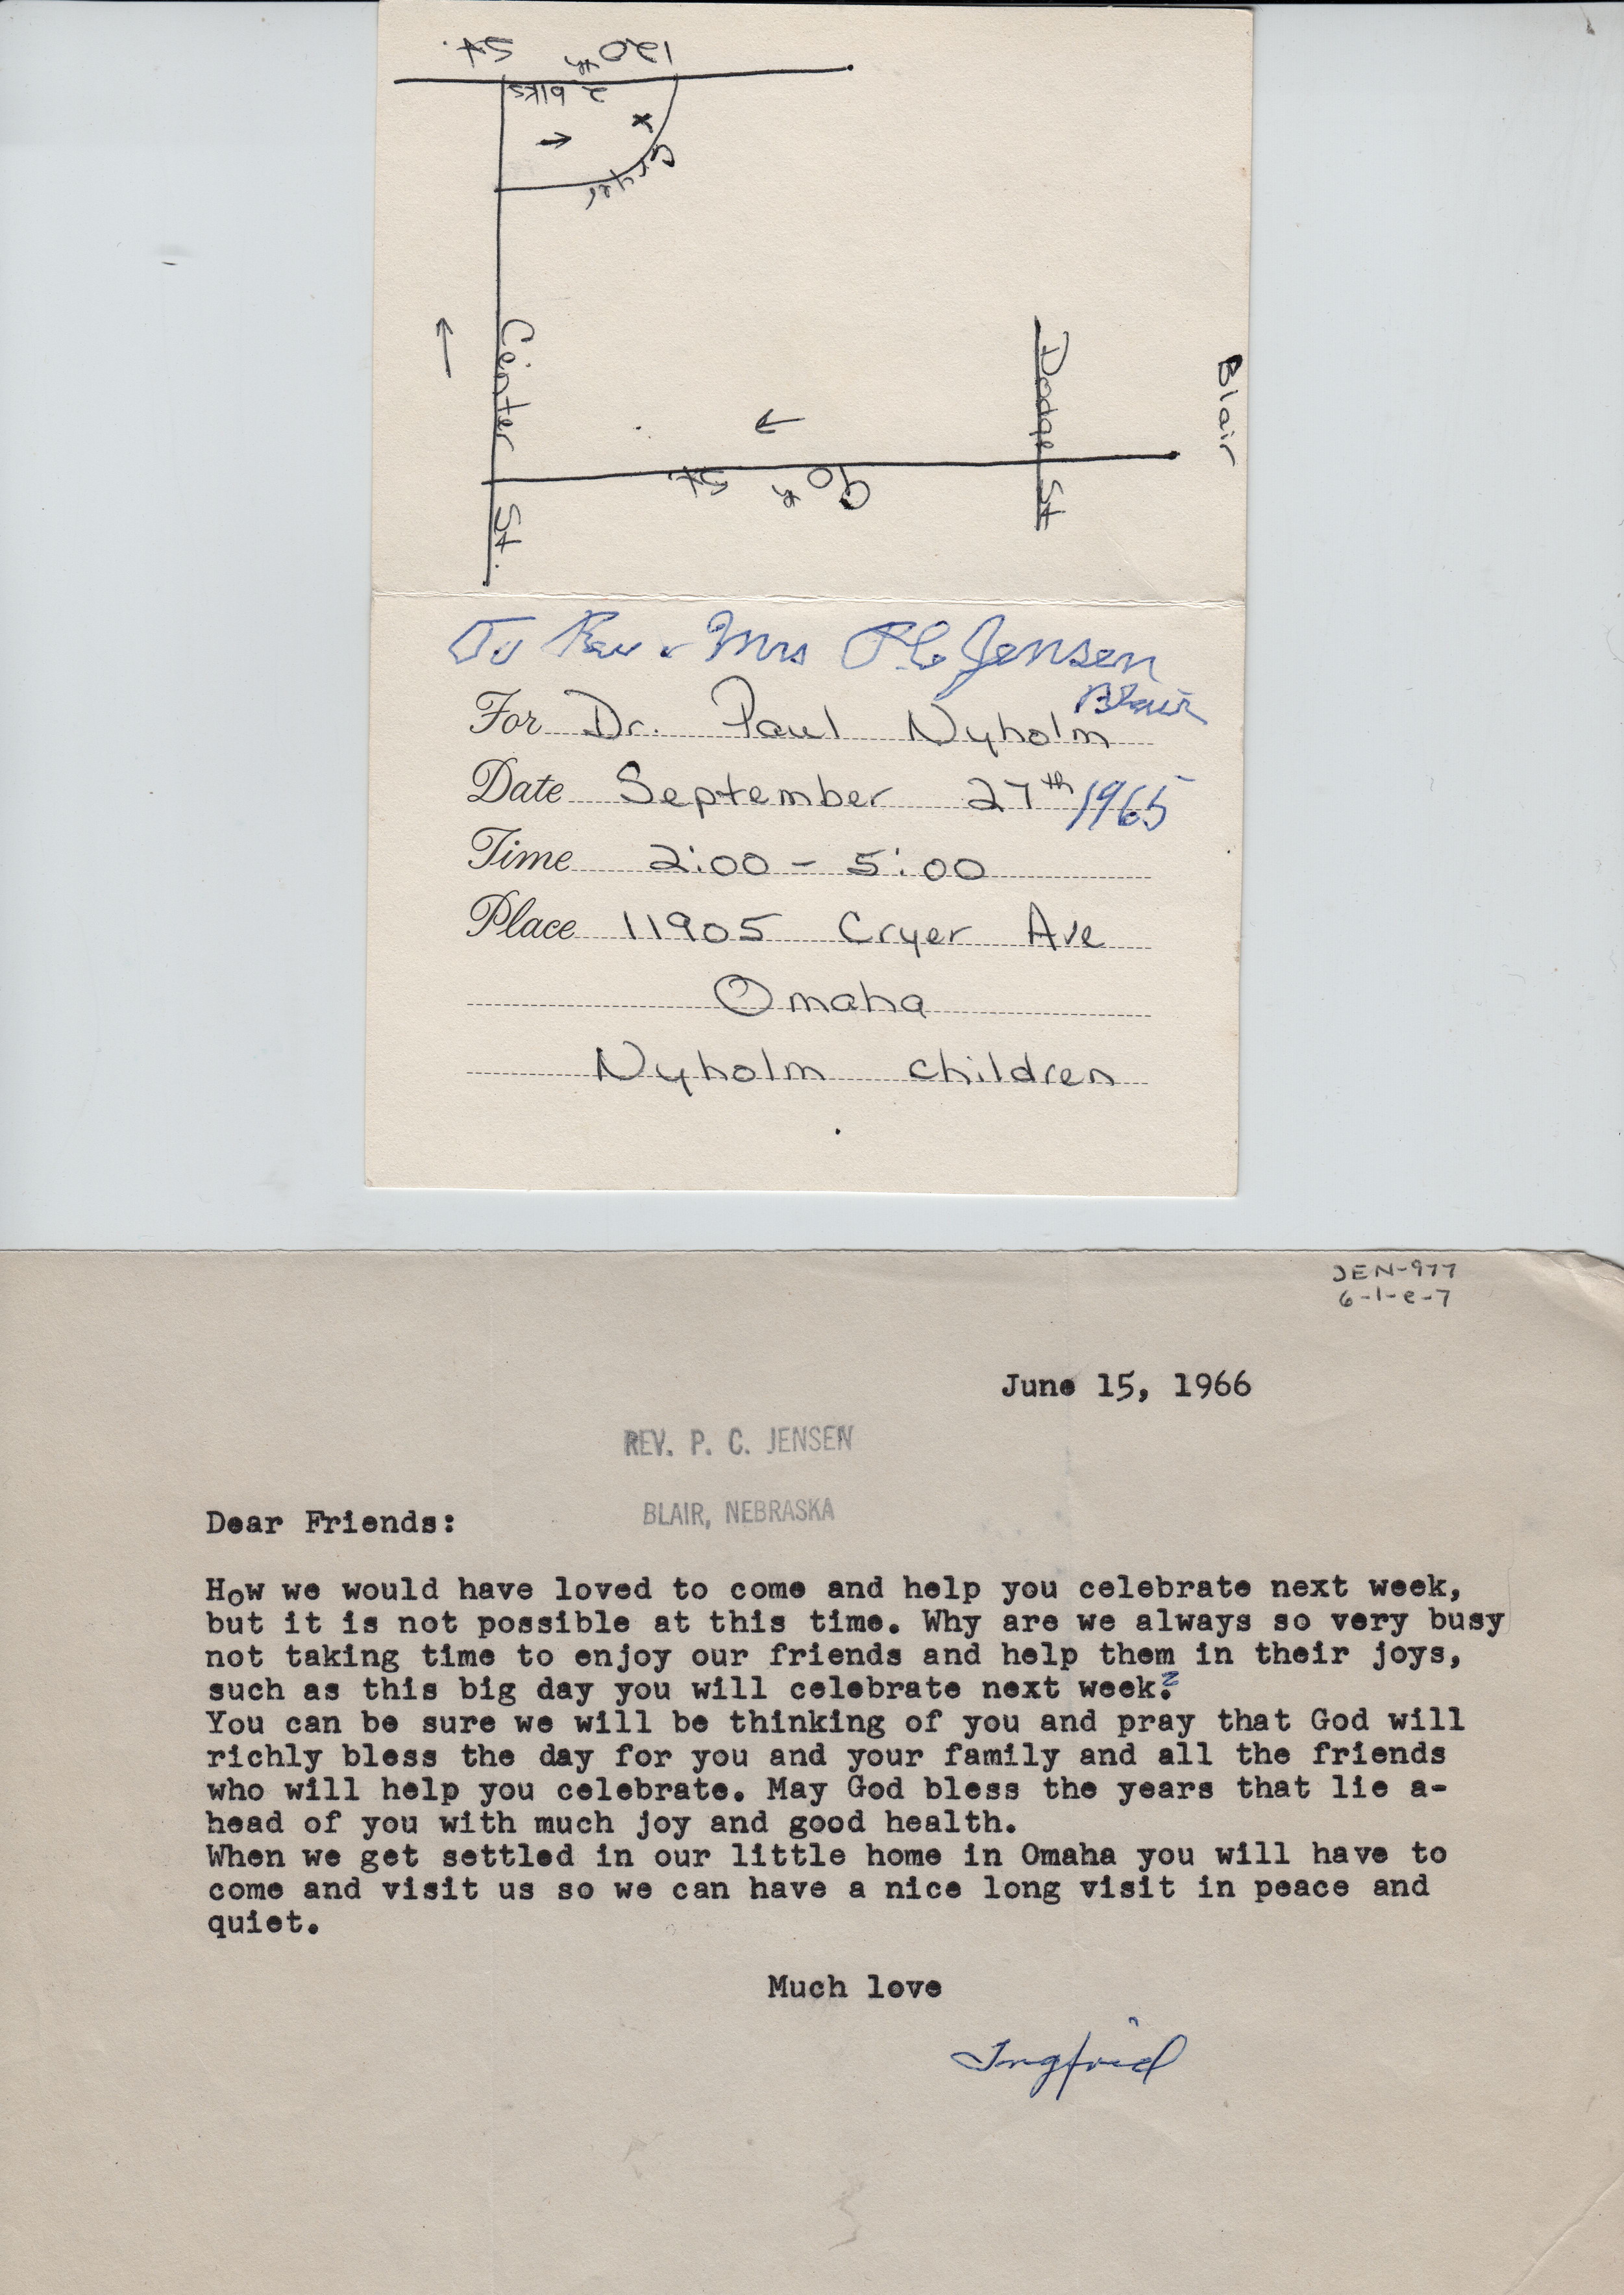 120th St.
2 blks
x
Cryer
Center St.
Dodge St
Blair
90th St
To Rev & Mrs P C Jensen
Blair
For Dr. Paul Nyholm
Date September 27th 1965
Time 2:00 - 5:00
Place 11905 Cryer Ave
Omaha
Nyholm children
JEN-977
6-1-e-7
June 15, 1966
REV. P. C. JENSEN
BLAIR, NEBRASKA
Dear Friends:
How we would have loved to come and help you celebrate next week,
but it is not possible at this time. Why are we always so very busy
not taking time to enjoy our friends and help them in their joys,
such as this big day you will celebrate next week?
You can be sure we will be thinking of you and pray that God will
richly bless the day for you and your family and all the friends
who will help you celebrate. May God bless the years that lie a-
head of you with much joy and good health.
When we get settled in our little home in Omaha you will have to
come and visit us so we can have a nice long visit in peace and
quiet.
Much love
Ingfrid